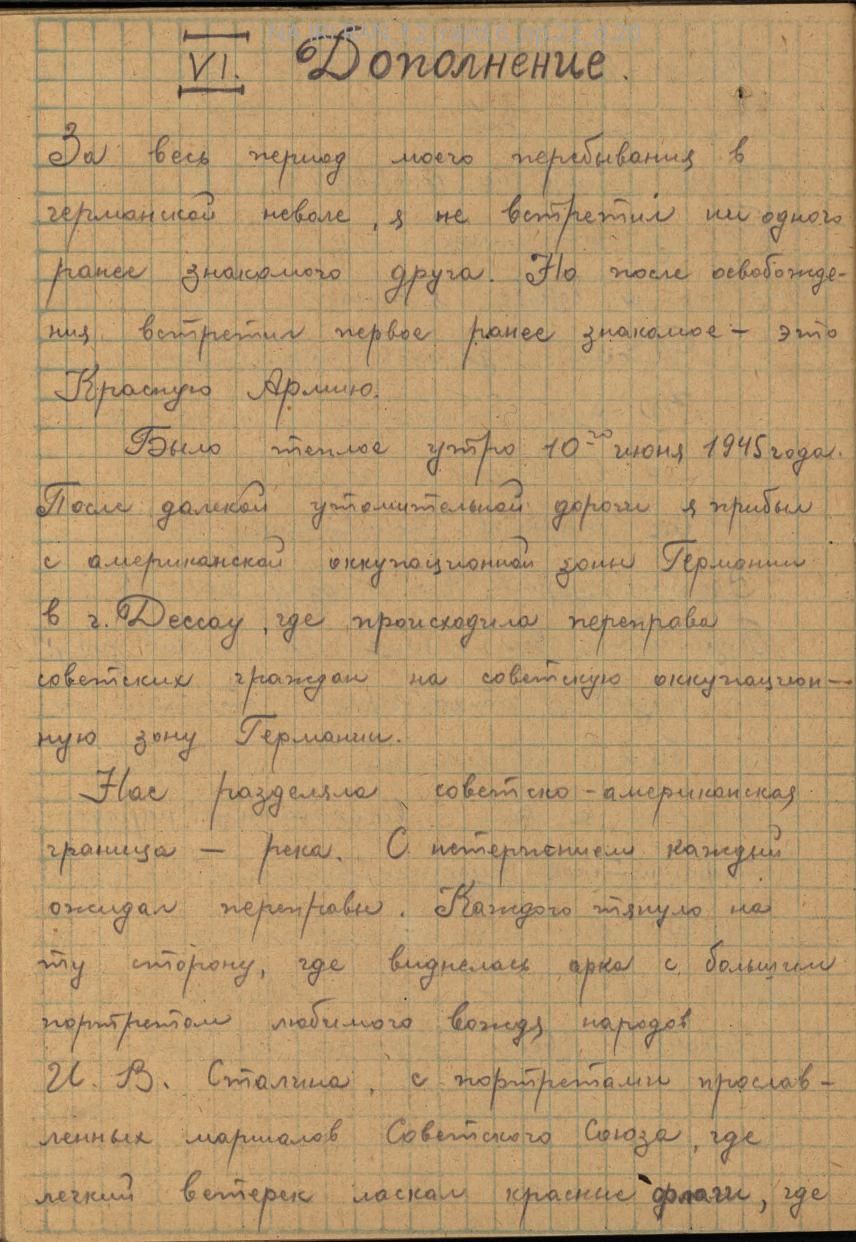 VI. Дополнение.
За весь период моего перебывания в
германской неволе, я не встретил ни одного
ранее знакомого друга. Но после освобожде-
ния встретил первое ранее знакомое – это
Красную Армию.
Было теплое утро 10го июня 1945 года.
После далекой утомительной дороги я прибыл
с американской оккупационной зоны Германии
в г. Дессау, где происходила переправа
советских граждан на советскую оккупацион-
ную зону Германии.
Нас разделяла советско-американская
граница – река. С нетерпением каждый
ожидал переправы. Каждого тянуло на
ту сторону, где виднелась арка с большим
портретом любимого вождя народов
И. В. Сталина, с портретами прослав-
ленных маршалов Советского Союза, где
легкий ветерек ласкал красные флаги, где